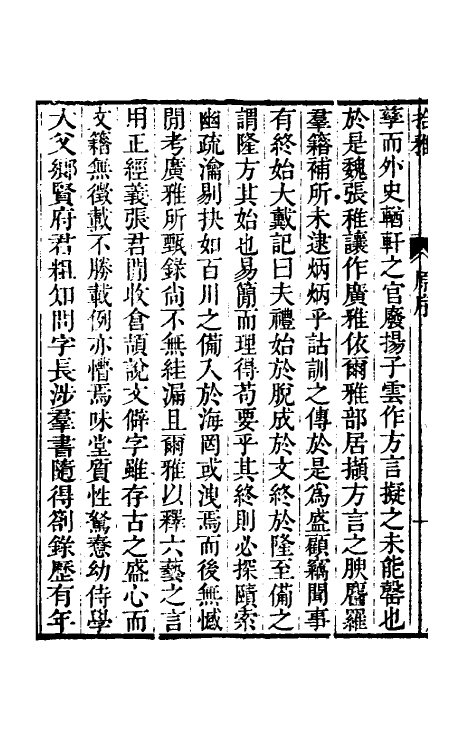 拾雅 原序
孳而外史輶軒之官廢揚子雲作方言擬之未能罄也
於是魏張稚讓作廣雅依爾雅部居擷方言之腴臅羅
羣籍補所未逮炳炳乎詁訓之傳於是為盛顧竊聞事
有終始大戴記曰夫禮始於脫成於文終於隆至備之
謂隆方其始也易簡而理得苟要乎其終則必探賾索
幽疏瀹剔抉如百川之備入於海罔或洩焉而後無憾
閒考廣雅所甄錄尙不無絓漏且爾雅以釋六藝之言
用正經義張君閒收倉頡說文僻字雖存古之盛心而
文籍無徵載不勝載例亦懵焉味堂質性駑憃幼侍學
人父鄉賢府君粗知問字長涉羣書隨得劄錄歷有年